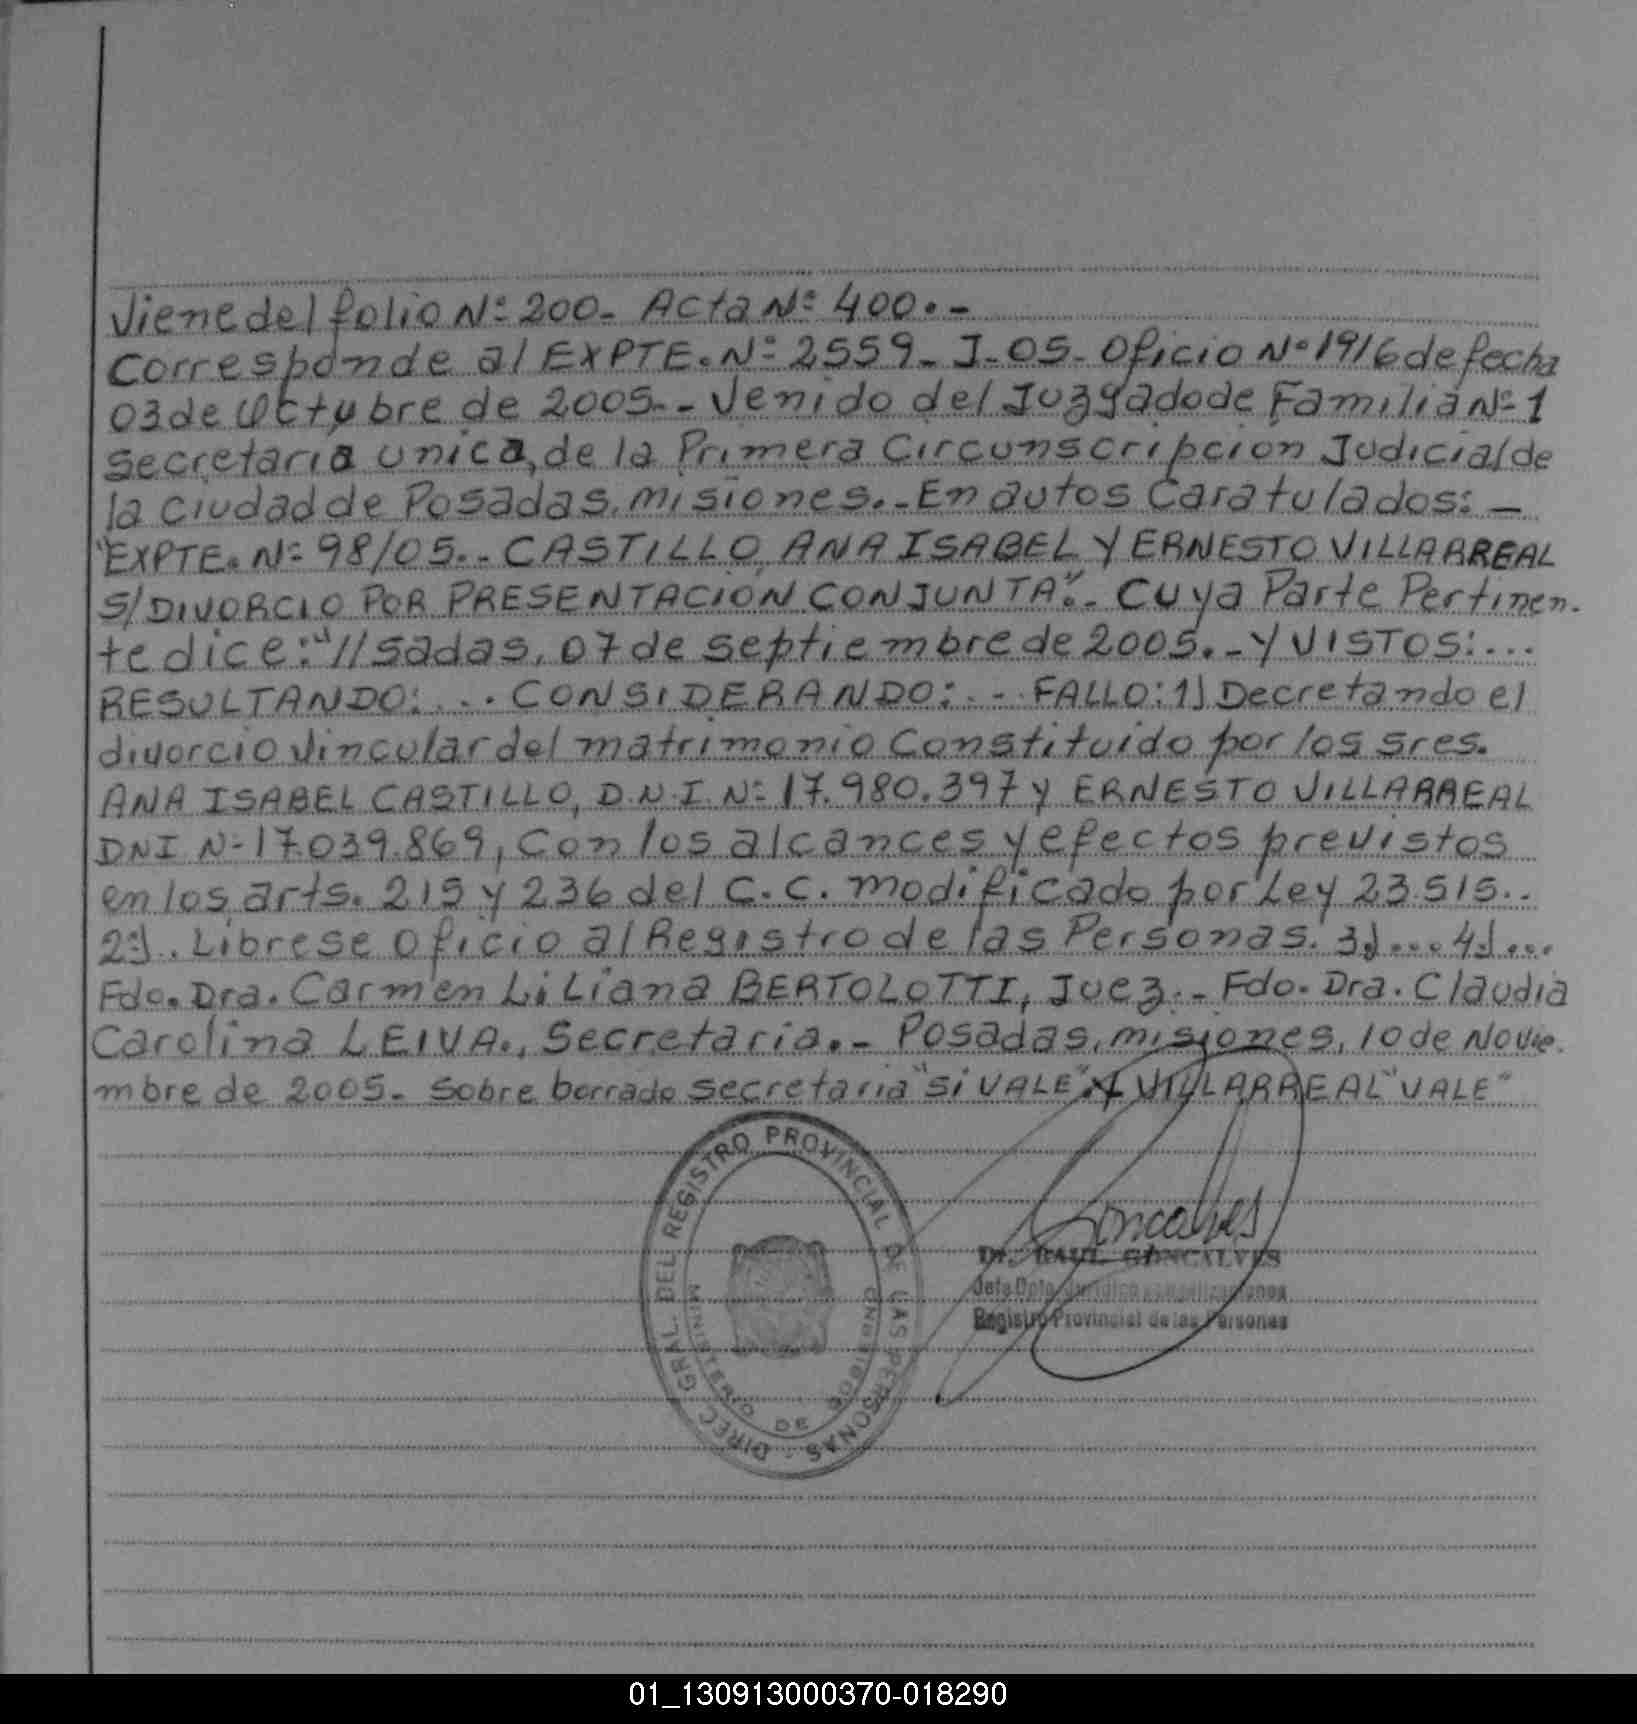 Viene del folio Nº 200- Acta Nº 400.-
Corresponde al EXPTE. Nº 2559- J-05- Oficio Nº 1916 de fecha
03 de Octubre de 2005.- Venido del Juzgado de Familia Nº 1
Secretaria unica, de la Primera Circunscripcion Judicial de
la Ciudad de Posadas, misiones.- En autos Caratulados: -
"EXPTE. Nº 98/05.- CASTILLO, ANA ISABEL Y ERNESTO VILLARREAL
S/ DIVORCIO POR PRESENTACION CONJUNTA".- Cuya Parte Pertinen-
te dice: "//sadas, 07 de septiembre de 2005.- Y VISTOS:...
RESULTANDO:... CONSIDERANDO:... FALLO: 1) Decretando el
divorcio vincular del matrimonio Constituido por los sres.
ANA ISABEL CASTILLO, D.N.I. Nº 17.980.397 y ERNESTO VILLARREAL
DNI Nº 17.039.869, Con los alcances y efectos previstos
en los arts. 215 y 236 del C.C. modificado por Ley 23.515..
2º). Librese Oficio al Registro de las Personas. 3.)... 4.)...
Fdo. Dra. Carmen Liliana BERTOLOTTI, Juez.- Fdo. Dra. Claudia
Carolina LEIVA., Secretaria.- Posadas, misiones, 10 de Novie-
mbre de 2005- Sobre borrado secretaria "Si VALE". Y VILLARREAL "VALE"
DIREC. GRAL. DEL REGISTRO PROVINCIAL DE LAS PERSONAS -
MINISTERIO DE GOBIERNO
Goncalves
Dr. RAUL GONCALVES
Jefe Dpto. Jurídico
Registro Provincial de las Personas
01_130913000370-018290